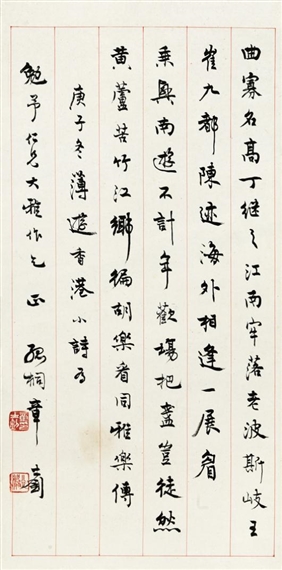 曲寡名高丁继之江南牢落老波斯岐王
崔九都陈迹海外相逢一展眉
乘興南遊不計年歡場把盞豈徒然
黄蘆苦竹江鄉徧胡樂看同雅樂傳
庚子冬薄遊香港小詩為
勉予仁兄大雅作乞正 孤桐章